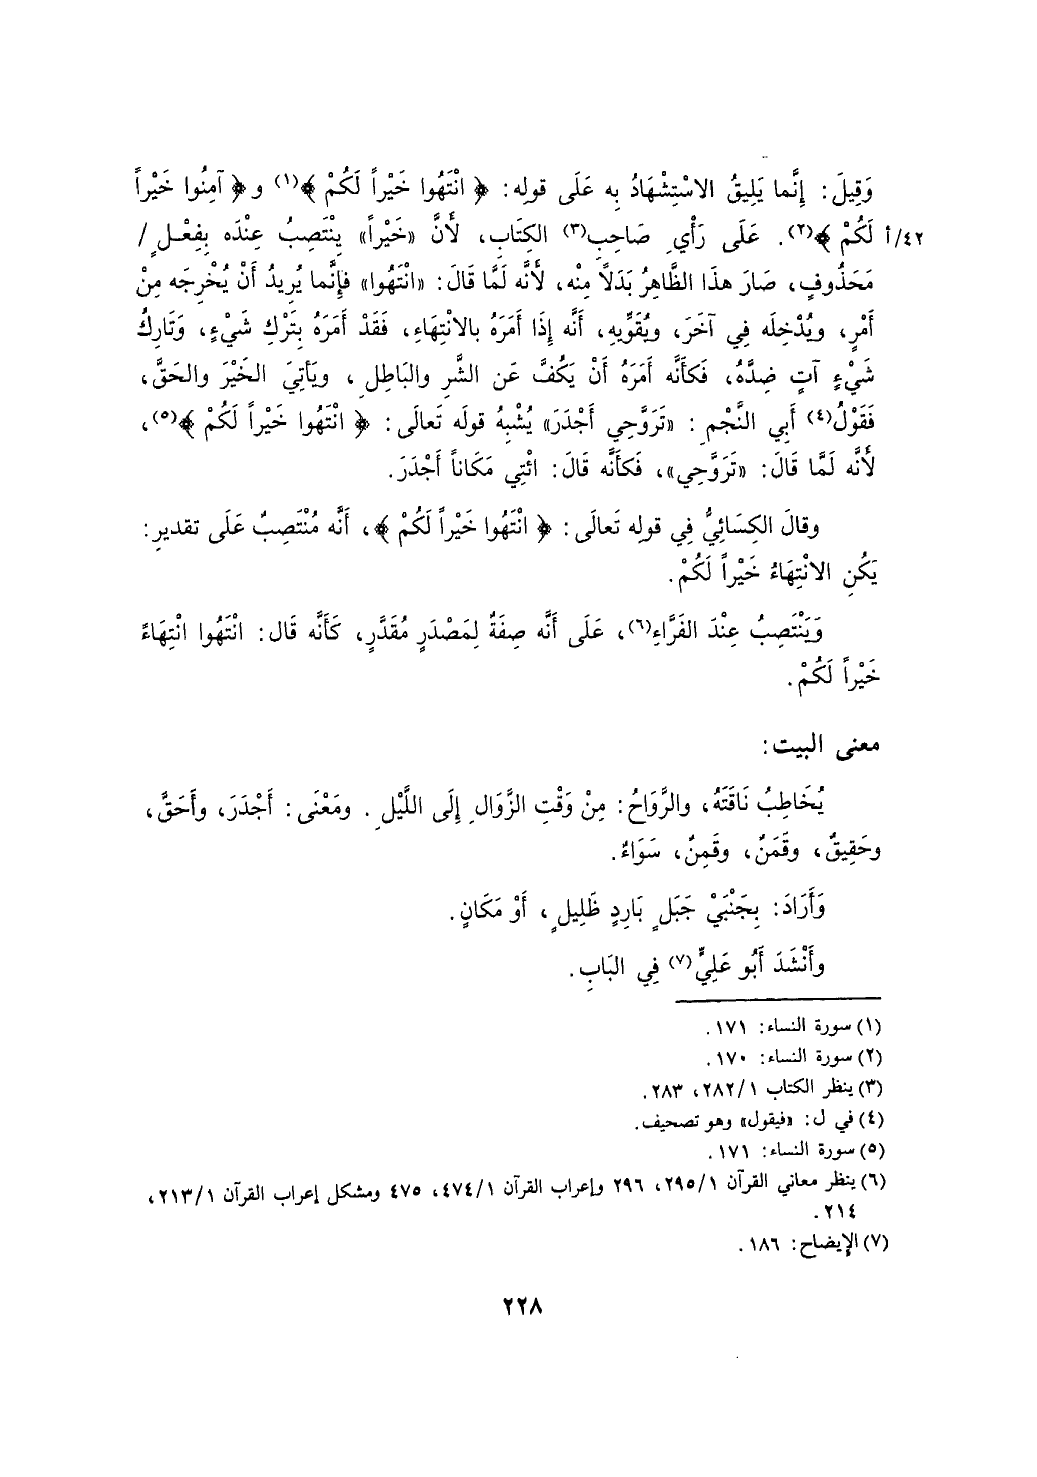 وَقِيلَ: إِنَّما يَلِيقُ الاسْتِشْهَادُ بِه عَلَى قولِه: ﴿ انْتَهُوا خَيْراً لَكُمْ ﴾(١) و﴿ آمِنُوا خَيْراً
٤٢/أ لَكُمْ ﴾(٢). عَلَى رَأْيِ صَاحِبِ(٣) الكِتَابِ، لأَنَّ «خَيْراً» يَنْتَصِبُ عِنْدَه بِفِعْلٍ /
مَحَذُوفٍ، صَارَ هذَا الظَّاهِرُ بَدَلاً مِنْه، لأَنَّه لَمَّا قَالَ: «انْتَهُوا» فإِنَّما يُرِيدُ أَنْ يُخْرِجَه مِنْ
أَمْرٍ، ويُدْخِلَه فِي آخَرَ، ويُقَوِّيهِ، أَنَّه إِذَا أَمَرَهُ بالانْتِهَاءِ، فَقَدْ أَمَرَهُ بِتَرْكِ شَيْءٍ، وَتَارِكُ
شَيْءٍ آتٍ ضِدَّهُ، فَكأَنَّه أَمَرَهُ أَنْ يَكُفَّ عَن الشَّرِ والبَاطِلِ، ويَأتِيَ الخَيْرَ والحَقَّ،
فَقَوْلُ(٤) أَبِي النَّجْمِ: «تَرَوَّحِي أَجْدَرَ» يُشْبِهُ قولَه تَعالَى: ﴿ انْتَهُوا خَيْراً لَكُمْ ﴾(٥)،
لأَنَّه لَمَّا قَالَ: «تَرَوَّحِي»، فَكأَنَّه قَالَ: ائْتِي مَكَاناً أَجْدَرَ.
وقالَ الكِسَائِيُّ فِي قولِه تَعالَى: ﴿ انْتَهُوا خَيْراً لَكُمْ ﴾، أَنَّه مُنْتَصِبٌ عَلَى تقديرِ:
يَكُنِ الانْتِهَاءُ خَيْراً لَكُمْ.
وَيَنْتَصِبُ عِنْدَ الفَرَّاءِ(٦)، عَلَى أَنَّه صِفَةٌ لِمَصْدَرٍ مُقَدَّرٍ، كَأَنَّه قَال: انْتَهُوا انْتِهَاءً
خَيْراً لَكُمْ.
معنى البيت:
يُخَاطِبُ نَاقَتَهُ، والرَّوَاحُ: مِنْ وَقْتِ الزَّوَالِ إِلَى اللَّيْلِ. ومَعْنَى: أَجْدَرَ، وأَحَقَّ،
وحَقِيقٌ، وقَمَنٌ، وقَمِنٌ، سَوَاءٌ.
وَأَرَادَ: بِجَنْبَيْ جَبَلٍ بَارِدٍ ظَلِيلٍ، أَوْ مَكَانٍ.
وأَنْشَدَ أَبُو عَلِيٍّ(٧) فِي البَابِ.
(١) سورة النساء: ١٧١.
(٢) سورة النساء: ١٧٠.
(٣) ينظر الكتاب ٢٨٢/١، ٢٨٣.
(٤) في ل: «فيقول» وهو تصحيف.
(٥) سورة النساء: ١٧١.
(٦) ينظر معاني القرآن ٢٩٥/١، ٢٩٦ وإعراب القرآن ٤٧٤/١، ٤٧٥ ومشكل إعراب القرآن ٢١٣/١،
٢١٤.
(٧) الإيضاح: ١٨٦.
٢٢٨